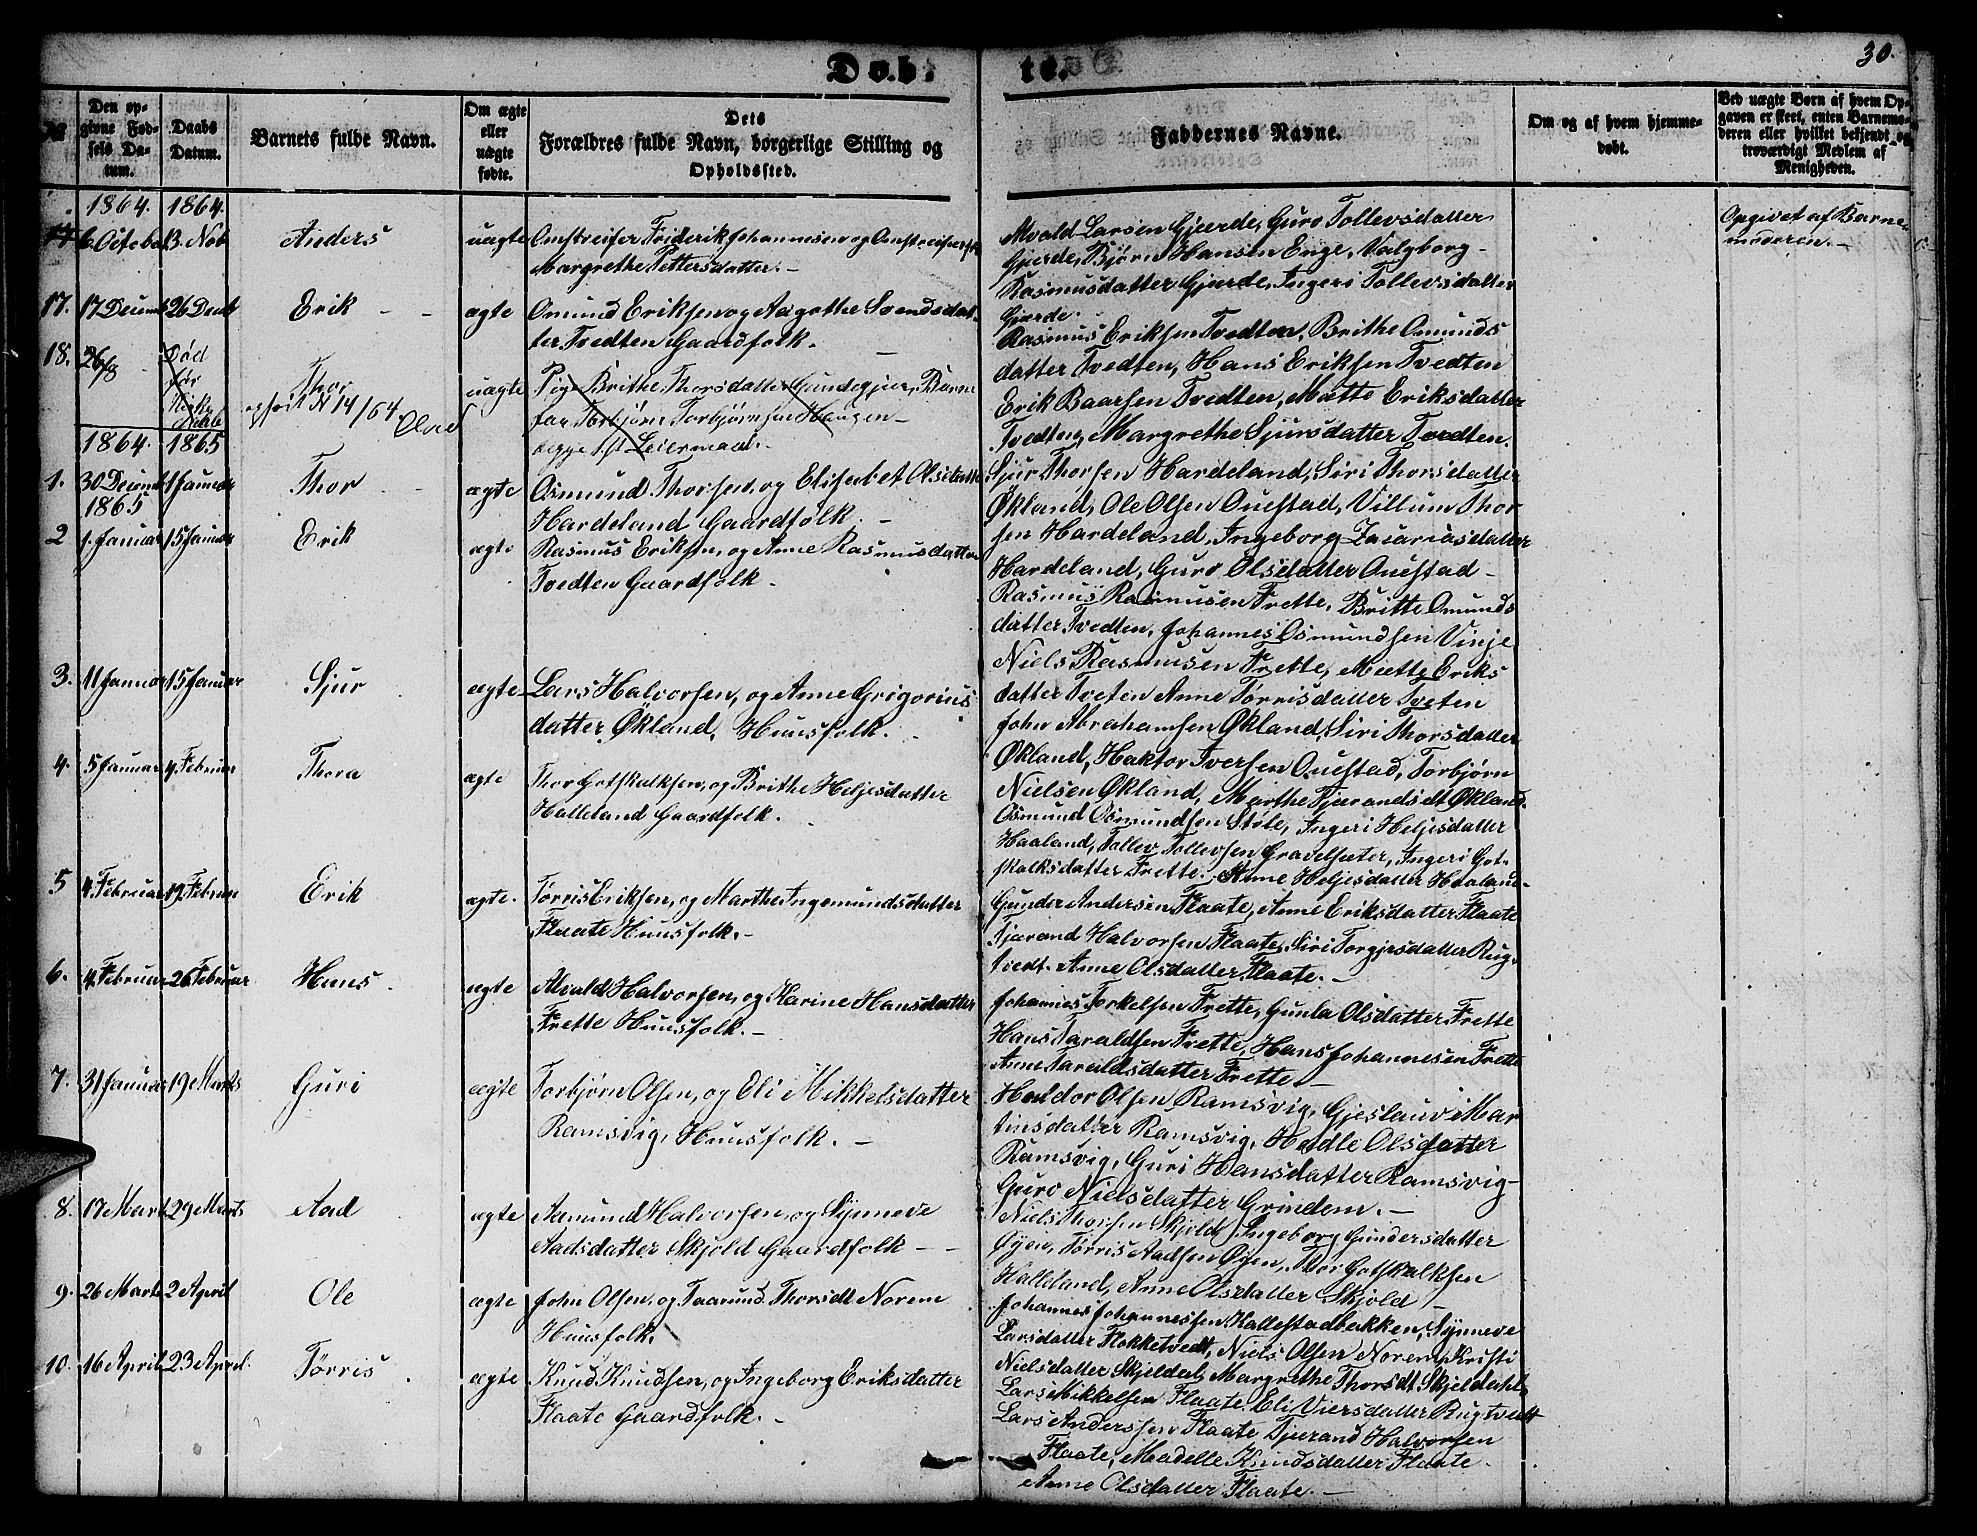 Døb. te.
30.
№
Den op-
givne Fød-
sels Da-
tum.
Daabs
Datum.
Barnets fulde Navn.
Om ægte
eller
uægte
fødte.
Dets
Forældres fulde Navn, borgerlige Stilling og
Opholdssted.
Faddernes Navne.
Om og af hvem hjemme-
døbt.
Ved uægte Børn af hvem Op-
gaven er skeet, enten Barnemo-
deren eller hvilket bekjendt og
troværdigt Medlem af
Menigheden.
1864. 1864.
6 October 13. Nob Anders uægte Omstreifer Friderik Johannesen og
Margrethe Pettersdatter. -
Alvald Larsen Gjærde, Guro Tollevsdatter
Gjerde, Bjørn Hansen Enge, Valgborg -
Rasmusdatter Gjærde, Ingeri Tollevsdatter
Gjærde.
Opgivet af Barne
moderen. -
17. 17 Decemb 26 Decb Erik - - ægte Omund Eriksen og Aagothe Svendsdat-
ter Tvedten Gaardfolk. -
Rasmus Eriksen Tvedten, Brithe Omunds
datter Tvedten, Hans Eriksen Tvedten
Erik Baarsen Tvedten, Mætte Eriksdatter
Tvedten, Margrethe Sjursdatter Tvedten.
18. 26/8 Død
før
Kirke
Daab
Thor
opført N 14/64
uægte Pige Brithe Thorsdatter Gundegjer, Barne
far Torbjørn Torbjørnsen Haugen -
begge 1st Leiermaal. -
1864. 1865
1. 30 Decemb 1 Januar Thor - - ægte Osmund Thorsen, og Elisabet Olsdatter
Hardeland Gaardfolk. -
Sjur Thorsen Hardeland, Siri Thorsdatter
Økland, Ole Olsen Ouestad, Villum Thor
sen Hardeland, Ingeborg Zacariasdatter
Hardeland, Guro Olsdatter Ouestad -
1865
2 1. Januar 15 Januar Erik ægte Rasmus Eriksen, og Anne Rasmusdatter
Tvedten Gaardfolk -
Rasmus Rasmusen Frette, Britte Omunds
datter Tvedten, Johannes Osmundsen Vinje
Niels Rasmusen Frette, Mætte Eriks
datter Tveten Anne Tørrisdatter Tveten
3. 11 Januar 15 Januar Sjur ægte Lars Halvorsen, og Anne Grigorius
datter Økland, Huusfolk.
John Abrahamsen Økland, Siri Thorsdatter
Økland, Haktor Iversen Ouestad, Torbjørn
Nielsen Økland, Marthe Tjærandsdt Økland
4. 5 Januar 4. Februar Thora ægte Thor Gotskalksen, og Brithe Heljesdatter
Halleland Gaardfolk.
Osmund Osmundsen Støle, Ingeri Heljesdatter
Haaland, Tollev Tollevsen Gravelsæter, Ingeri Got-
skalksdatter Frette. Anne Heljesdatter Haaland -
5 4. Februar 19. Februar Erik ægte. Tørris Eriksen, og Marthe Ingemundsdatter
Flaate Huusfolk. -
Gunder Andersen Flaate, Anne Eriksdatter Flaate
Tjærand Halvorsen Flaate, Siri Torgjersdatter Rug-
tvedt. Anne Olsdatter Flaate. -
6. 4. Februar 26 Februar Hans. ægte Alvald Halvorsen, og Karine Hansdatter
Frette Huusfolk. -
Johannes Torkelsen Frette, Gunla Olsdatter Frette
Hans Taraldsen Frette, Hans Johannesen Frette
Anne Taraldsdatter Frette. -
7. 31 Januar 19 Marts Guri ægte Torbjørn Olsen, og Eli Mikkelsdatter
Ramsvig, Huusfolk. -
Haldor Olsen Ramsvig, Gjeslauvi Mar
tinsdatter Ramsvig, Hedle Olsdatter
Ramsvig, Guri Hansdatter Ramsvig -
Guro Nielsdatter Grindem. -
8. 17 Mart 29 Marts Aad ægte Aamund Halvorsen, og Synneve
Aadsdatter Skjold Gaardfolk - -
Niels Thorsen Skjold, Ingeborg Gundersdatter
Øyen, Tørris Aadsen Øyen, Thor Gotskalksen
Halleland, Anne Olsdatter Skjold -
9. 26 Marts 2 April Ole ægte John Olsen, og Taarund Thorsdt Norem
Huusfolk.
Johannes Johannessen Kallestadbakken, Synneve
Larsdatter Flokketvedt, Niels Olsen Norem, Kristi
Nielsdatter Skjeldal, Margrethe Thorsdt Skjeldahl
10. 16 April 23 April. Tørris ægte Knud Knudsen, og Ingeborg Eriksdatter
Flaate Gaardfolk. -
Lars Mikkelsen Flaate. Eli Viersdatter Rugtvedt
Lars Anderssen Flaate Tjærand Halvorsen
Flaate, Madelle Knudsdatter Flaate.
Anne Olsdatter Flaate. -